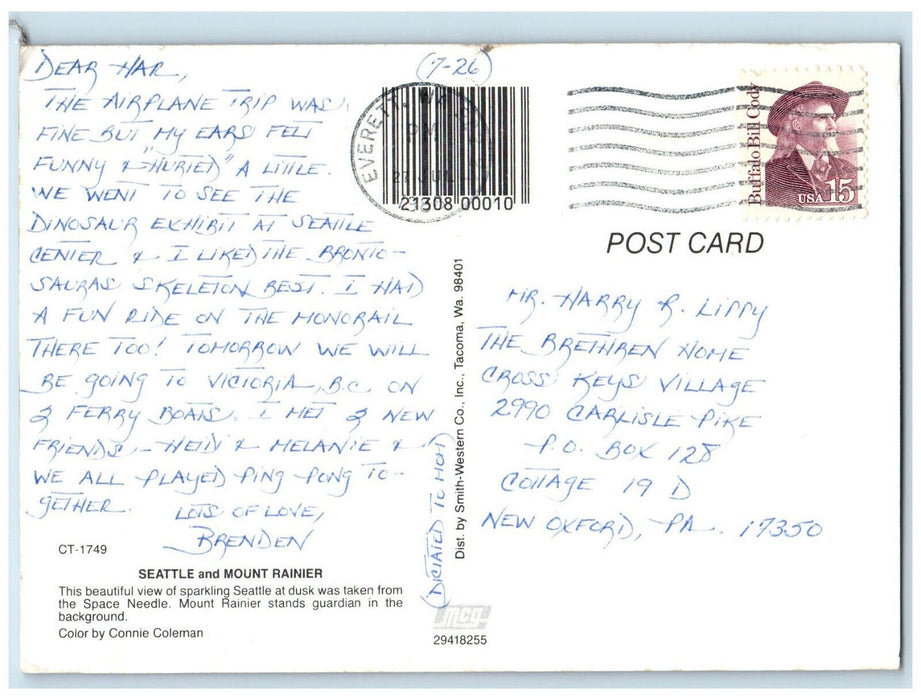 (7-26)
DEAR HAR,
THE AIRPLANE TRIP WAS
FINE BUT MY EARS FELT
FUNNY & "HURTED" A LITTLE.
WE WENT TO SEE THE
DINOSAUR EXHIBIT AT SEATTLE
CENTER & I LIKED THE BRONTO-
SAURAS SKELETON BEST. I HAD
A FUN RIDE ON THE MONORAIL
THERE TOO! TOMORROW WE WILL
BE GOING TO VICTORIA, B.C. ON
2 FERRY BOATS. I MET 2 NEW
FRIENDS - HEIDI & MELANIE &
WE ALL PLAYED PING PONG TO-
GETHER.
LOTS OF LOVE,
BRENDEN
(DICTATED TO MOM)
CT-1749
SEATTLE and MOUNT RAINIER
This beautiful view of sparkling Seattle at dusk was taken from
the Space Needle. Mount Rainier stands guardian in the
background.
Color by Connie Coleman
Dist. by Smith-Western Co., Inc., Tacoma, Wa. 98401
EVERETT, WA
PM
JUL
21308 00010
Buffalo Bill Cody
USA 15
POST CARD
MR. HARRY R. LIPPY
THE BRETHREN HOME
CROSS KEYS VILLAGE
2990 CARLISLE PIKE
P.O. BOX 128
COTTAGE 19 D
NEW OXFORD, PA. 17350
mcg
29418255